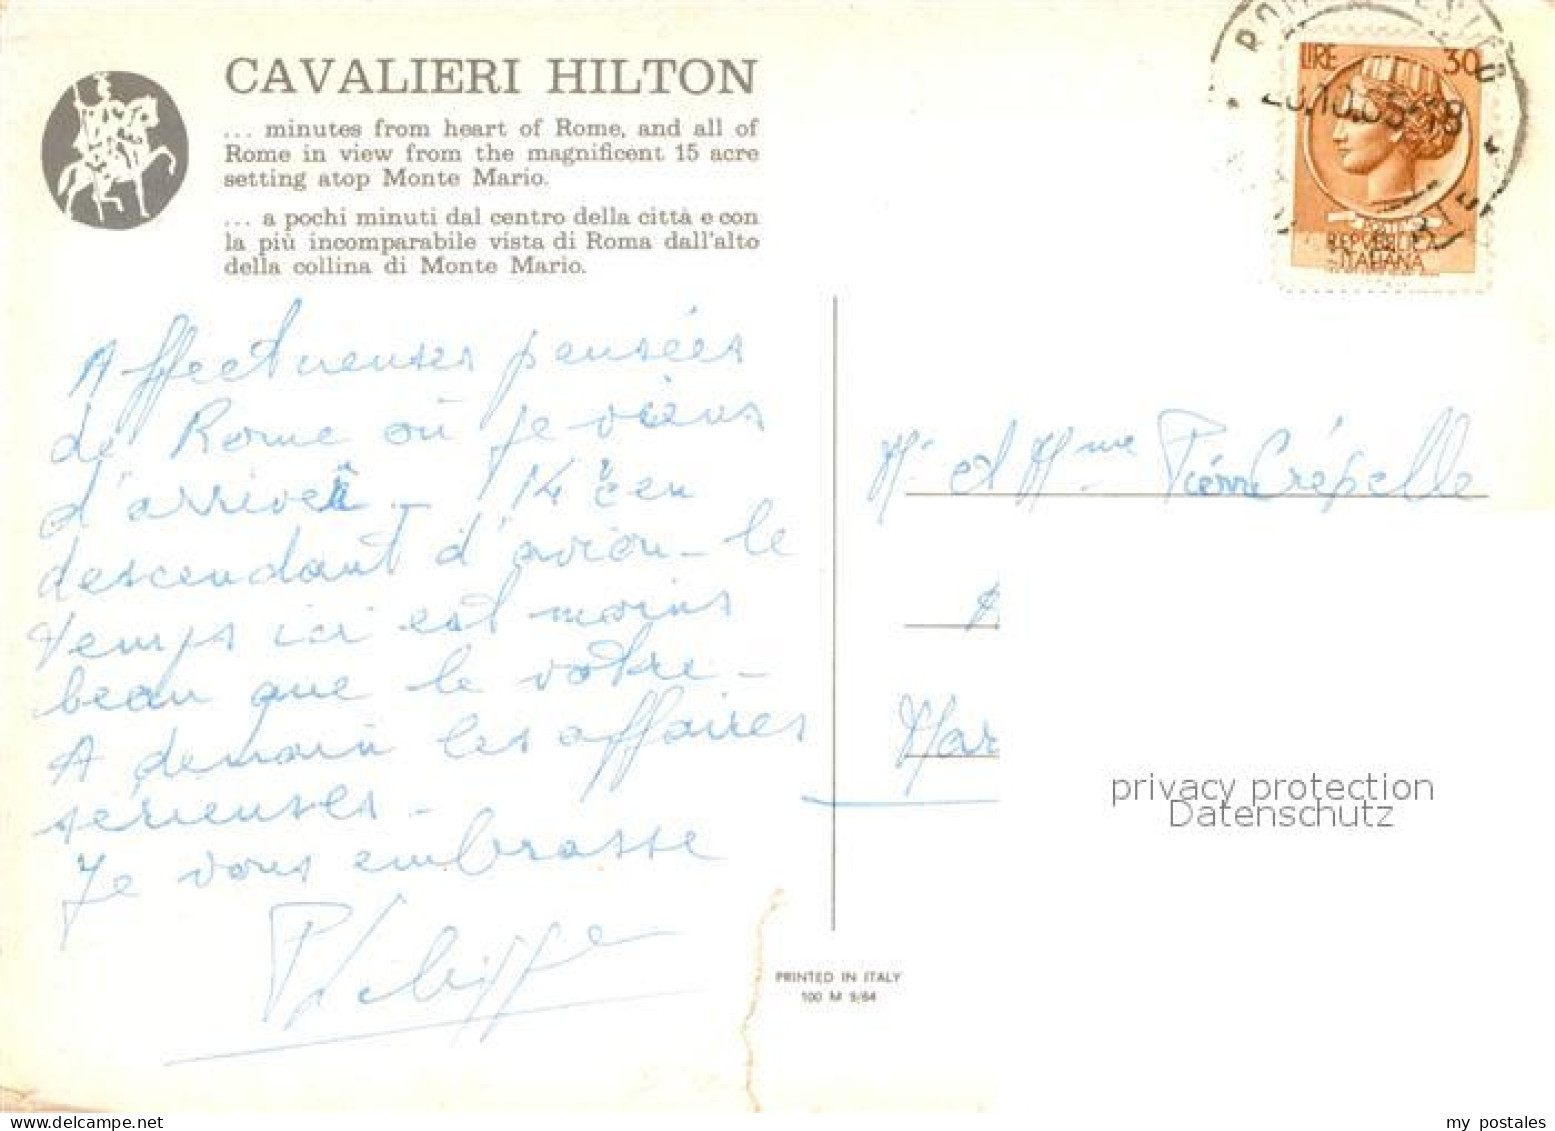 CAVALIERI HILTON
... minutes from heart of Rome, and all of
Rome in view from the magnificent 15 acre
setting atop Monte Mario.
... a pochi minuti dal centro della città e con
la più incomparabile vista di Roma dall'alto
della collina di Monte Mario.
Affectueuses pensées
de Rome où je viens
d'arriver - 14°c en
descendant d'avion - le
temps ici est moins
beau que le votre -
A demain les affaires
sérieuses -
Je vous embrasse
Philippe
LIRE 30
POSTE
REPUBBLICA
ITALIANA
M. et Mme Pierre Crépelle
Mar
privacy protection
Datenschutz
PRINTED IN ITALY
100 M 5/64
my postales